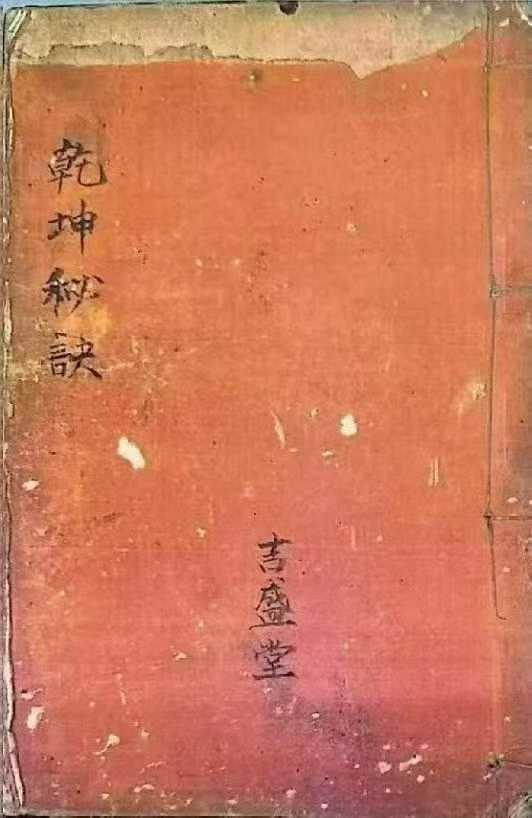 乾坤秘訣
吉盛堂